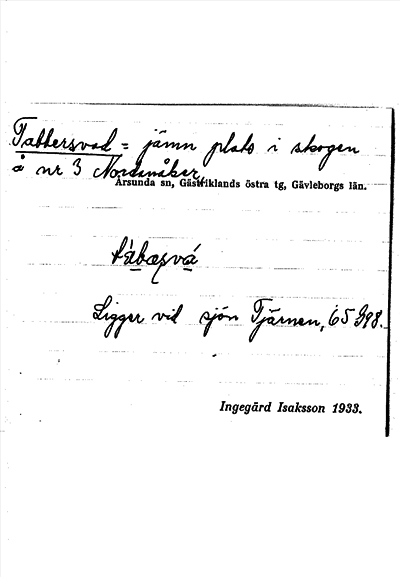 Tabbersvad = jämn plats i skogen
å nr 3 Nordanåker,
Årsunda sn, Gästriklands östra tg, Gävleborgs län.
Ligger vid sjön Tjärnen, 65 G98.
Ingegärd Isaksson 1933.